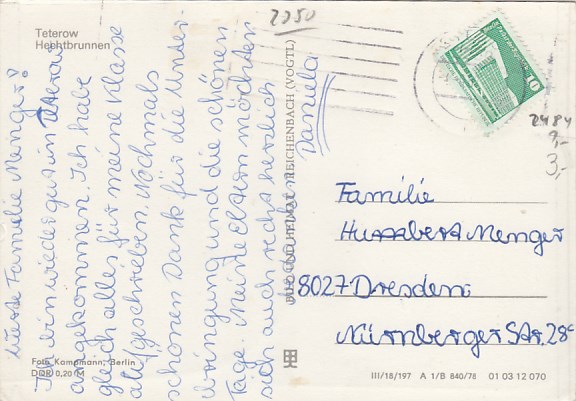 Teterow
Hechtbrunnen
Werte Familie Menger!
Ich bin wieder gut in Teterow
angekommen. Ich habe
gleich alles für meine Klasse
aufgeschrieben. Nochmals
schönen Dank für die Unter-
bringung und die schönen
Tage. Meine Eltern möchten
sich auch recht herzlich
Daniela
Foto Kampmann, Berlin
DDR 0,20 M
REICHENBACH (VOGTL)
2050
10
2484
3,-
Familie
Humbert Menger
8027 Dresden
Nürnberger Str. 28
III/18/197 A 1/B 840/78 01 03 12 070